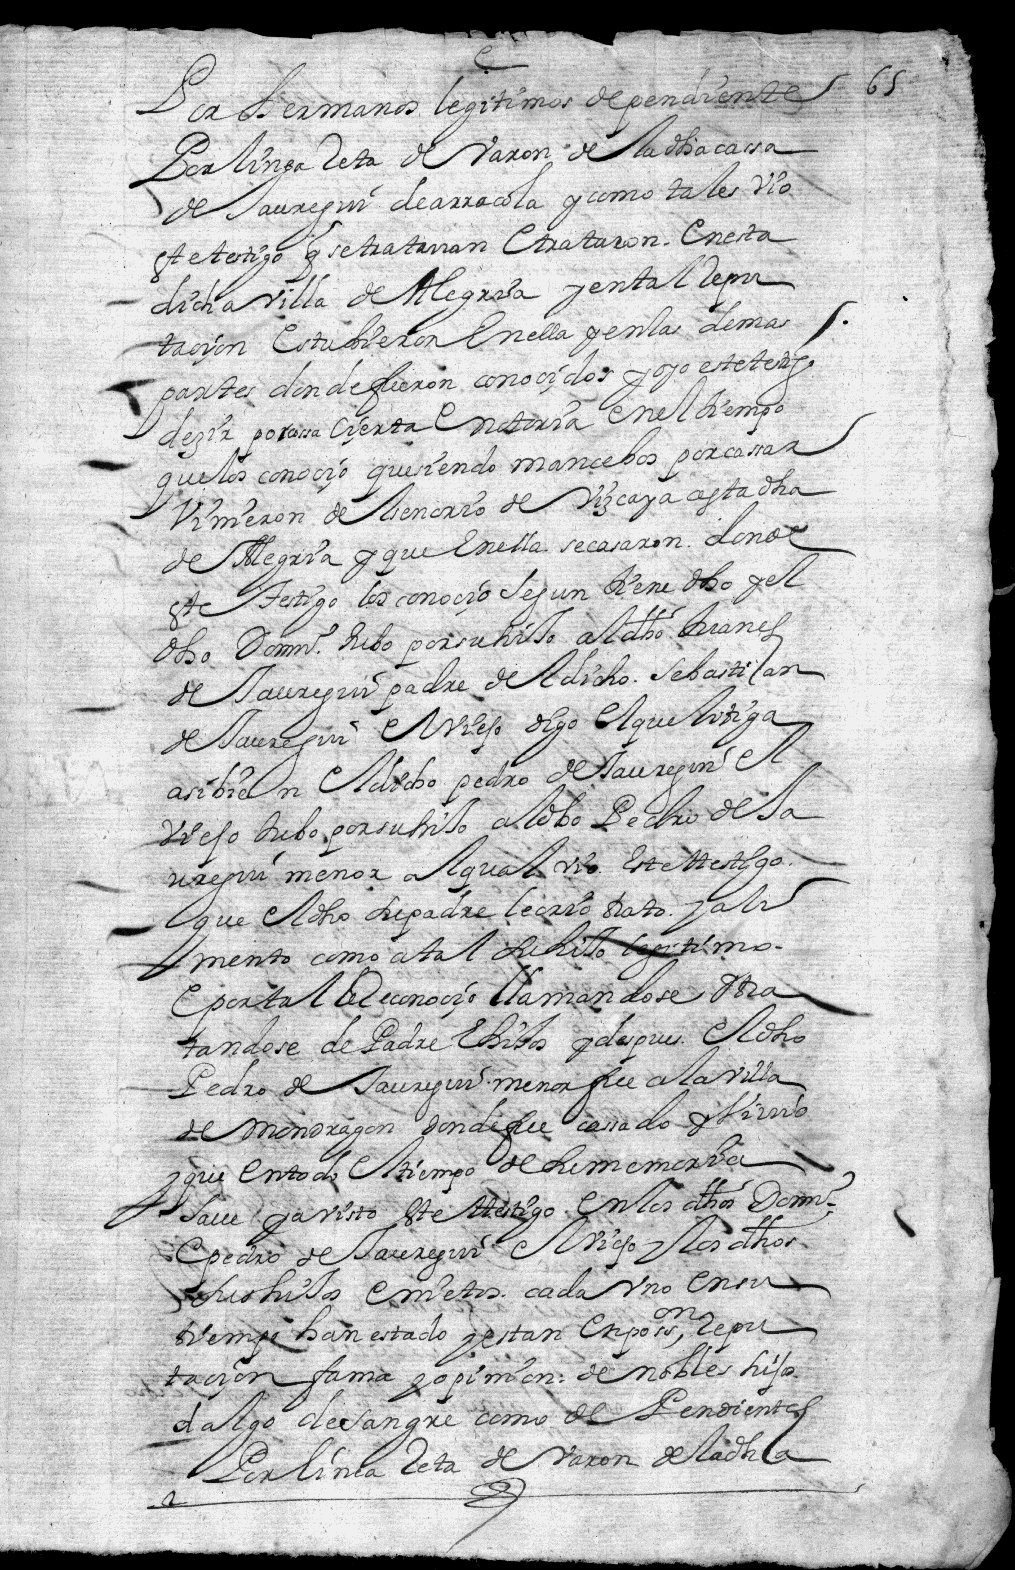 65
Por hermanos legitimos dependientes
Por linea Reta de Varon de la dha cassa
de Jauregui de arracola y como tales vio
este testigo q se tratavan E trataron. En esta
dicha villa de Alegria y en tal Repu
tacion Estubieron En ella y en las demas
partes donde fueron conocidos y oyo este testigo
dezir por cossa cierta E notoria En el tiempo
que los conocio que siendo mancebos por cassar
Vinieron de senorio de Vizcaya a esta dha
de Alegria y que En ella se casaron donde
este testigo los conocio segun tiene dho y el
dho Domin. hubo por su hijo al dho Juanes
de Jauregui padre del dicho Sebastian
de Jauregui El viejo digo El que litiga
asi bien El dicho pedro de Jauregui El
viejo hubo por su hijo al dho Pedro de Ja
uregui menor al qual vio Este testigo
que El dho su padre le crio trato y ali
mento como a tal su hijo legitimo
E por tal le Reconocio llamandose E tra
tandose de Padre E hijos y despues El dho
Pedro de Jauregui menor fue a la villa
de Mondragon donde fue casado y vivio
y que En todo El tiempo de su memoria
save y a visto Este testigo En los dhos Domin.
E pedro de Jauregui El viejo y los dhos
sus hijos E nietos cada vno En su
tiempo han estado y estan En poss.on, Repu
tacion fama y opinion: de nobles hijos
dalgo de sangre como de Pendientes
Por linea Reta de Varon de la dha